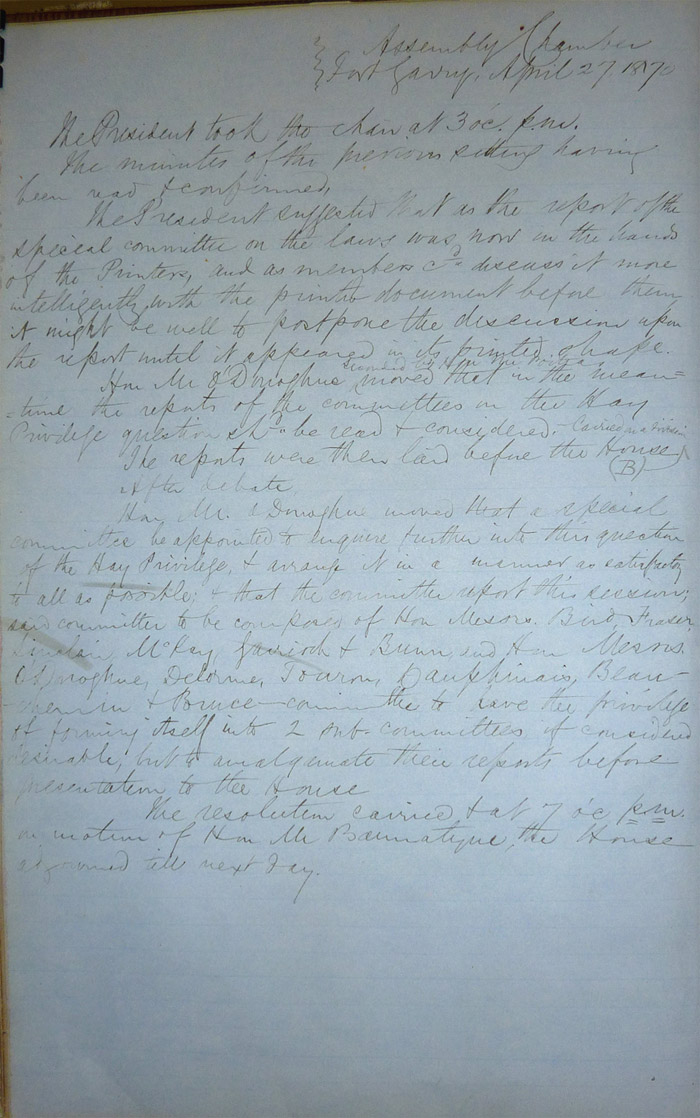 Assembly Chamber
Fort Garry, April 27 1870
The President took the chair at 3 o'c. p.m.
The minutes of the previous sitting having
been read & confirmed,
The President suggested that as the report of the
special committee on the laws was now in the hands
of the Printers, and as members cd discuss it more
intelligently with the printed document before them
it might be well to postpone the discussion upon
the report until it appeared in its printed shape.
seconded by Hon Mr
Hon Mr O'Donoghue moved that in the mean-
-time the reports of the committees on the Hay
Privilege question shd be read & considered. - Carried on a division
The reports were then laid before the House
(B)
After debate,
Hon Mr. O'Donoghue moved that a special
committee be appointed to enquire further into this question
of the Hay Privilege, & arrange it in a manner as satisfactory
to all as possible; & that the committee report this session;
said committee to be composed of Hon Messrs. Bird, Fraser,
Sinclair, McKay, Garrioch & Bunn, and Hon Messrs
O'Donoghue, Delorme, Touron, Dauphinais, Beau-
-chemin & Bruce - committee to have the privilege
of forming itself into 2 sub-committees if considered
desirable, but to amalgamate their reports before
presentation to the House
The resolution carried & at 7 o'c p.m.
on motion of Hon Mr Bannatyne, the House
adjourned till next day.